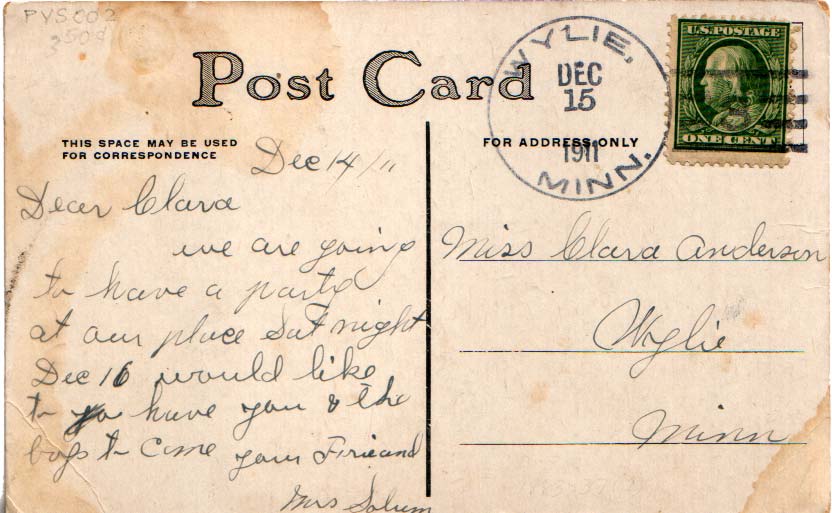 PVSC02
350d
Post Card
THIS SPACE MAY BE USED
FOR CORRESPONDENCE
FOR ADDRESS ONLY
WYLIE,
DEC
15
1911
MINN.
U.S. POSTAGE
ONE CENT
Dec 14/11
Dear Clara
we are going
to have a party
at our place Sat night
Dec 16 would like
to have you & the
boys to come your Frieand
Mrs Solum
Miss Clara Anderson
Wylie
Minn